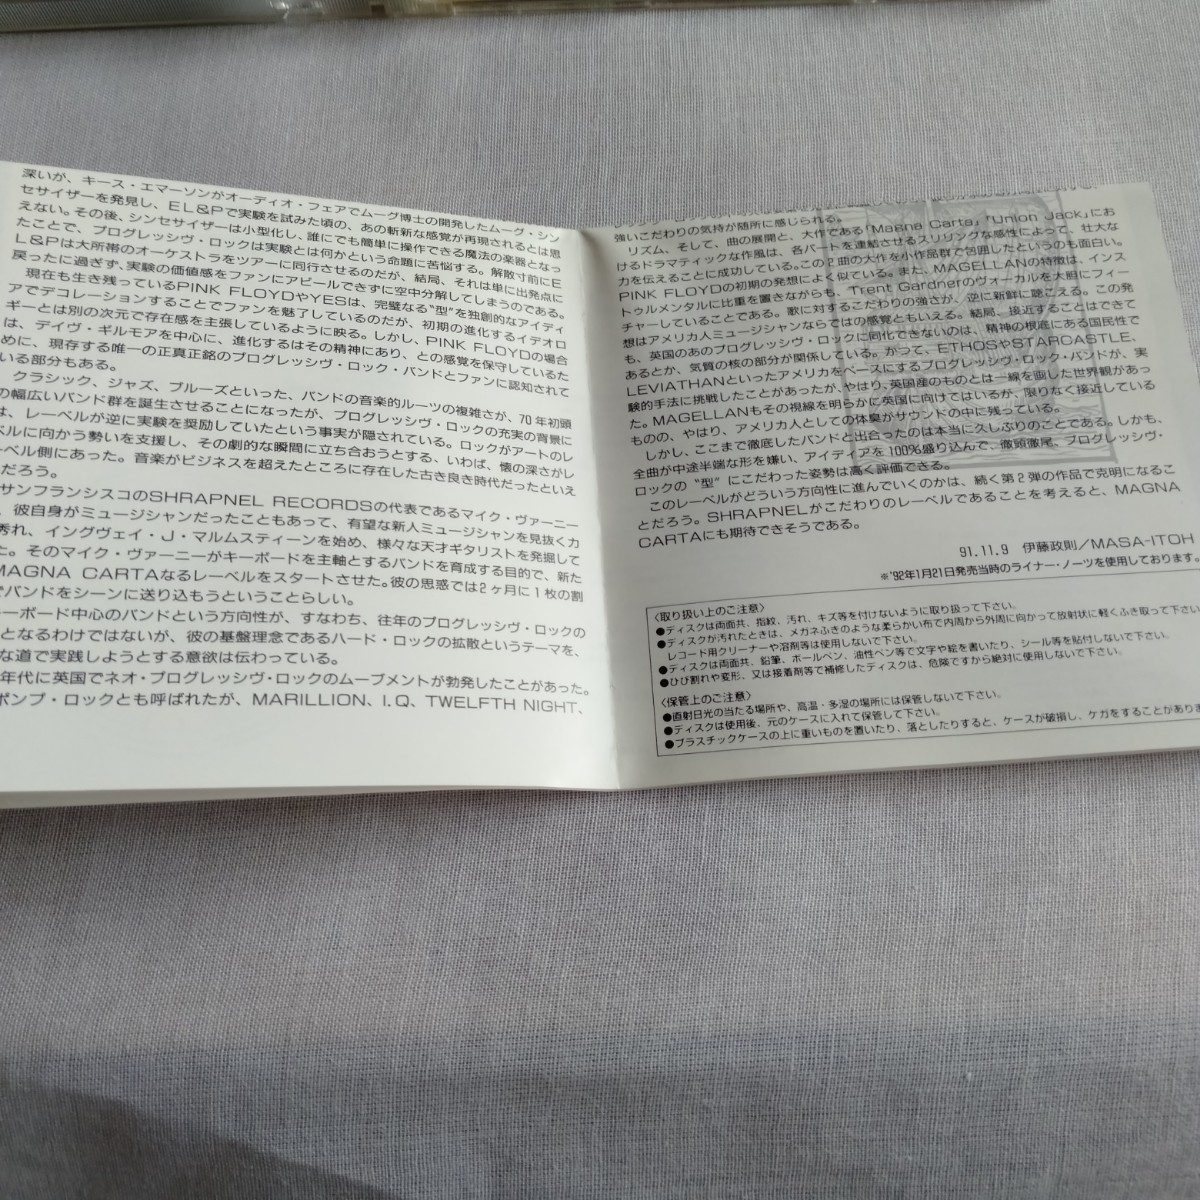 深いが、キース・エマーソンがオーディオ・フェアでムーグ博士の開発したムーグ・シン
セサイザーを発見し、EL&Pで実験を試みた頃の、あの斬新な感覚が再現されるとは思
えない。その後、シンセサイザーは小型化し、誰にでも簡単に操作できる魔法の楽器となっ
たことで、プログレッシヴ・ロックは実験とは何かという命題に苦悩する。解散寸前にE
L&Pは大所帯のオーケストラをツアーに同行させるのだが、結局、それは単に出発点に
戻ったに過ぎず、実験の価値感をファンにアピールできずに空中分解してしまうのである。
現在も生き残っているPINK FLOYDやYESは、完璧なる“型”を独創的なアイディ
アでデコレーションすることでファンを魅了しているのだが、初期の進化するイデオロ
ギーとは別の次元で存在感を主張しているように映る。しかし、PINK FLOYDの場合
は、デイヴ・ギルモアを中心に、進化するはその精神にあり、との感覚を保守しているた
めに、現存する唯一の正真正銘のプログレッシヴ・ロック・バンドとファンに認知されて
いる部分もある。
クラシック、ジャズ、ブルーズといった、バンドの音楽的ルーツの複雑さが、70年初頭
の幅広いバンド群を誕生させることになったが、プログレッシヴ・ロックの充実の背景に
は、レーベルが逆に実験を奨励していたという事実が隠されている。ロックがアートのレ
ベルに向かう勢いを支援し、その劇的な瞬間に立ち合おうとする、いわば、懐の深さがレ
ーベル側にあった。音楽がビジネスを超えたところに存在した古き良き時代だったといえ
だろう。
サンフランシスコのSHRAPNEL RECORDSの代表であるマイク・ヴァーニー
、彼自身がミュージシャンだったこともあって、有望な新人ミュージシャンを見抜く力
秀れ、イングヴェイ・J・マルムスティーンを始め、様々な天才ギタリストを発掘して
た。そのマイク・ヴァーニーがキーボードを主軸とするバンドを育成する目的で、新た
MAGNA CARTAなるレーベルをスタートさせた。彼の思惑では2ヶ月に1枚の割
でバンドをシーンに送り込もうということらしい。
ーボード中心のバンドという方向性が、すなわち、往年のプログレッシヴ・ロックの
となるわけではないが、彼の基盤理念であるハード・ロックの拡散というテーマを、
な道で実践しようとする意欲は伝わっている。
年代に英国でネオ・プログレッシヴ・ロックのムーブメントが勃発したことがあった。
ポンプ・ロックとも呼ばれたが、MARILLION、I.Q、TWELFTH NIGHT、
強いこだわりの気持が随所に感じられる。
リズム、そして、曲の展開と、大作である「Magna Carta」「Union Jack」にお
けるドラマティックな作風は、各パートを連結させるスリリングな感性によって、壮大な
力を伝えることに成功している。この2曲の大作を小作品群で包囲したというのも面白い。
PINK FLOYDの初期の発想によく似ている。また、MAGELLANの特徴は、インス
トゥルメンタルに比重を置きながらも、Trent Gardnerのヴォーカルを大胆にフィー
チャーしていることである。歌に対するこだわりの強さが、逆に新鮮に聴こえる。この発
想はアメリカ人ミュージシャンならではの感覚ともいえる。結局、接近することはできて
も、英国のあのプログレッシヴ・ロックに同化できないのは、精神の根底にある国民性で
あるとか、気質の核の部分が関係している。かつて、ETHOSやSTARCASTLE、
LEVIATHANといったアメリカをベースにするプログレッシヴ・ロック・バンドが、実
験的手法に挑戦したことがあったが、やはり、英国産のものとは一線を画した世界観があっ
た。MAGELLANもその視線を明らかに英国に向けてはいるが、限りなく接近している
ものの、やはり、アメリカ人としての体臭がサウンドの中に残っている。
しかし、ここまで徹底したバンドと出合ったのは本当に久しぶりのことである。しかも、
全曲が中途半端な形を嫌い、アイディアを100%盛り込んで、徹頭徹尾、プログレッシヴ・
ロックの“型”にこだわった姿勢は高く評価できる。
このレーベルがどういう方向性に進んでいくのかは、続く第2弾の作品で克明になるこ
とだろう。SHRAPNELがこだわりのレーベルであることを考えると、MAGNA
CARTAにも期待できそうである。
91.11.9 伊藤政則/MASA-ITOH
※'92年1月21日発売当時のライナー・ノーツを使用しております。
〈取り扱い上のご注意〉
●ディスクは両面共、指紋、汚れ、キズ等を付けないように取り扱って下さい。
●ディスクが汚れたときは、メガネふきのような柔らかい布で内周から外周に向かって放射状に軽くふき取って下さい。
レコード用クリーナーや溶剤等は使用しないで下さい。
●ディスクは両面共、鉛筆、ボールペン、油性ペン等で文字や絵を書いたり、シール等を貼付しないで下さい。
●ひび割れや変形、又は接着剤等で補修したディスクは、危険ですから絶対に使用しないで下さい。
〈保管上のご注意〉
●直射日光の当たる場所や、高温・多湿の場所には保管しないで下さい。
●ディスクは使用後、元のケースに入れて保管して下さい。
●プラスチックケースの上に重いものを置いたり、落としたりすると、ケースが破損し、ケガをすることがありま